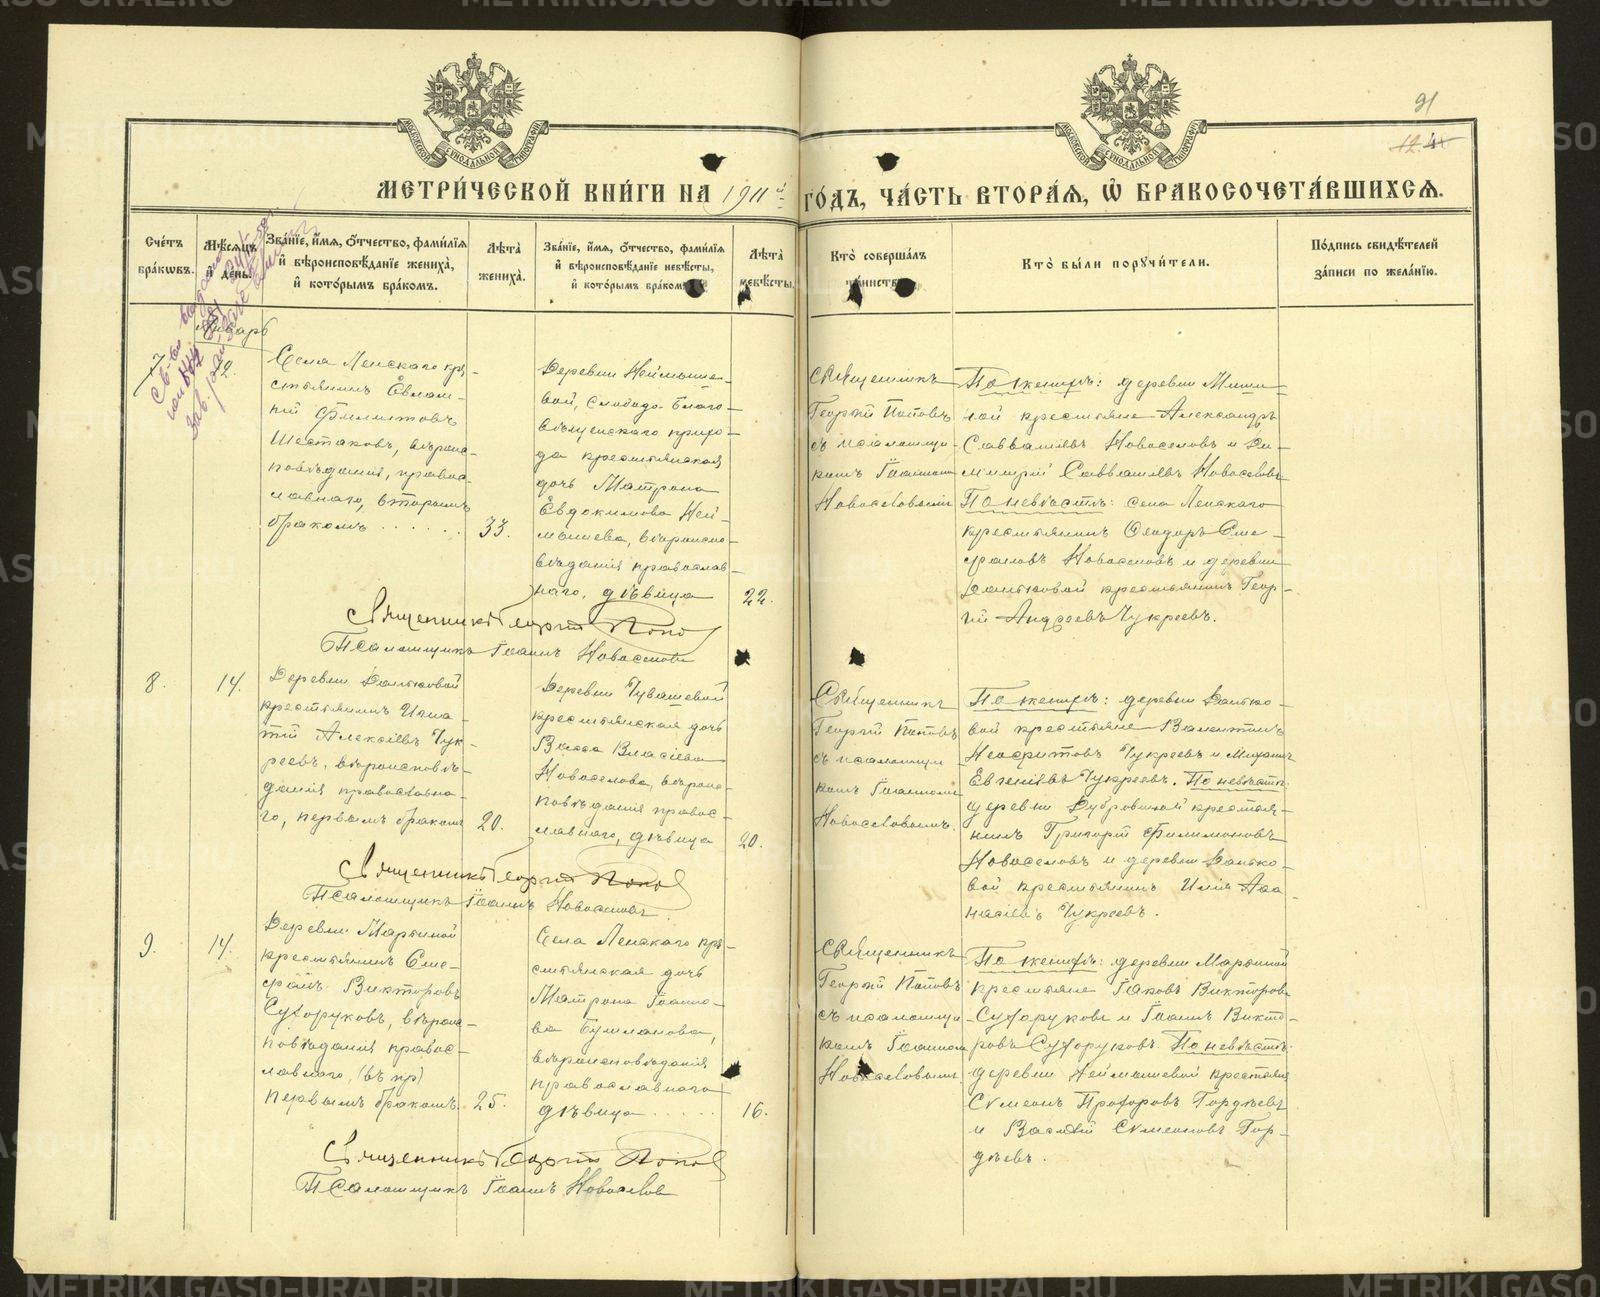 91
МЕТРИ́ЧЕСКОЙ КНИ́ГИ НА 1911й ГО́ДЪ, ЧА́СТЬ ВТОРА́Я, Ѡ БРАКОСОЧЕТА́ВШИХСЯ.
Сче́тъ бра́ковъ.
Мѣ́сяцъ и҆ де́нь.
Зва́нїе, и҆́мя, ѻ҆́тчество, фами́лїя
и҆ вѣроисповѣ́данїе жениха̀,
и҆ кото́рымъ бра́комъ.
Лѣ́та жениха̀.
Зва́нїе, и҆́мя, ѻ҆́тчество, фами́лїя
и҆ вѣроисповѣ́данїе невѣ́сты,
и҆ кото́рымъ бра́комъ
Лѣ́та невѣ́сты.
Кто̀ соверша́лъ
та́инство
Кто̀ бы́ли порꙋчи́тели.
По́дпись свидѣ́телей
за́писи по жела́нїю.
Январь
7
12.
Села Ленскаго кре-
стьянинъ Евлам-
пій Филитовъ
Шестаковъ, вѣроис-
повѣданія, правос-
лавнаго, вторымъ
бракомъ . . . . . 33.
Деревни Неймыше-
вой, Слободо-Благо-
вѣщенскаго прихо-
да крестьянская
дочь Матрона
Евдокимова Ней-
мышева, вѣроиспо-
вѣданія православ-
наго, дѣвица
22.
Священникъ
Георгій Поповъ
съ псаломщи-
комъ Іоанномъ
Новоселовымъ
По женихѣ: деревни Миши-
ной крестьяне Александръ
Савватіевъ Новоселовъ и Ди-
митрій Савватіевъ Новоселовъ
По невѣстѣ: села Ленскаго
крестьянинъ Ѳеодоръ Сте-
фановъ Новоселовъ и деревни
крестьянинъ Геор-
гій Андреевъ Чукреевъ.
Священникъ Георгій Поповъ
Псаломщикъ Іоаннъ Новоселовъ
8.
14.
Деревни
крестьянинъ Игна-
тій Алексіевъ Чук-
реевъ, вѣроисповѣ-
данія православна-
го, первымъ бракомъ 20.
Деревни Чувашевой
крестьянская дочь
Васса Власіева
Новоселова, вѣроис-
повѣданія правос-
лавнаго, дѣвица
20.
Священникъ
Георгій Поповъ
съ псаломщи-
комъ Іоанномъ
Новоселовымъ.
По женихѣ: деревни
вой крестьяне Валентинъ
Чукреевъ и Михаилъ
Евгеніевъ Чукреевъ. По невѣстѣ:
деревни Дубровиной крестья-
нинъ Григорій Филимоновъ
Новоселовъ и деревни
вой крестьянинъ Илія Аѳа-
насіевъ Чукреевъ.
Священникъ Георгій Поповъ
Псаломщикъ Іоаннъ Новоселовъ.
9.
14.
Деревни Марьиной
крестьянинъ Сте-
фанъ Викторовъ
Сухоруковъ, вѣроис-
повѣданія правос-
лавнаго, (въ пр)
первымъ бракомъ. 25.
Села Ленскаго кре-
стьянская дочь
Матрона Іоанно-
ва Бушланова,
вѣроисповѣданія
православнаго
дѣвица . . . . .
16.
Священникъ
Георгій Поповъ
съ псаломщи-
комъ Іоанномъ
Новоселовымъ.
По женихѣ: деревни Марьиной
крестьяне Іаковъ Викторовъ
Сухоруковъ и Іоаннъ Викто-
ровъ Сухоруковъ. По невѣстѣ:
деревни Неймышевой крестьяне
Сѵмеонъ Прохоровъ Гордѣевъ
и Василій Сѵмеоновъ Гор-
дѣевъ.
Священникъ Георгій Поповъ
Псаломщикъ Іоаннъ Новоселовъ